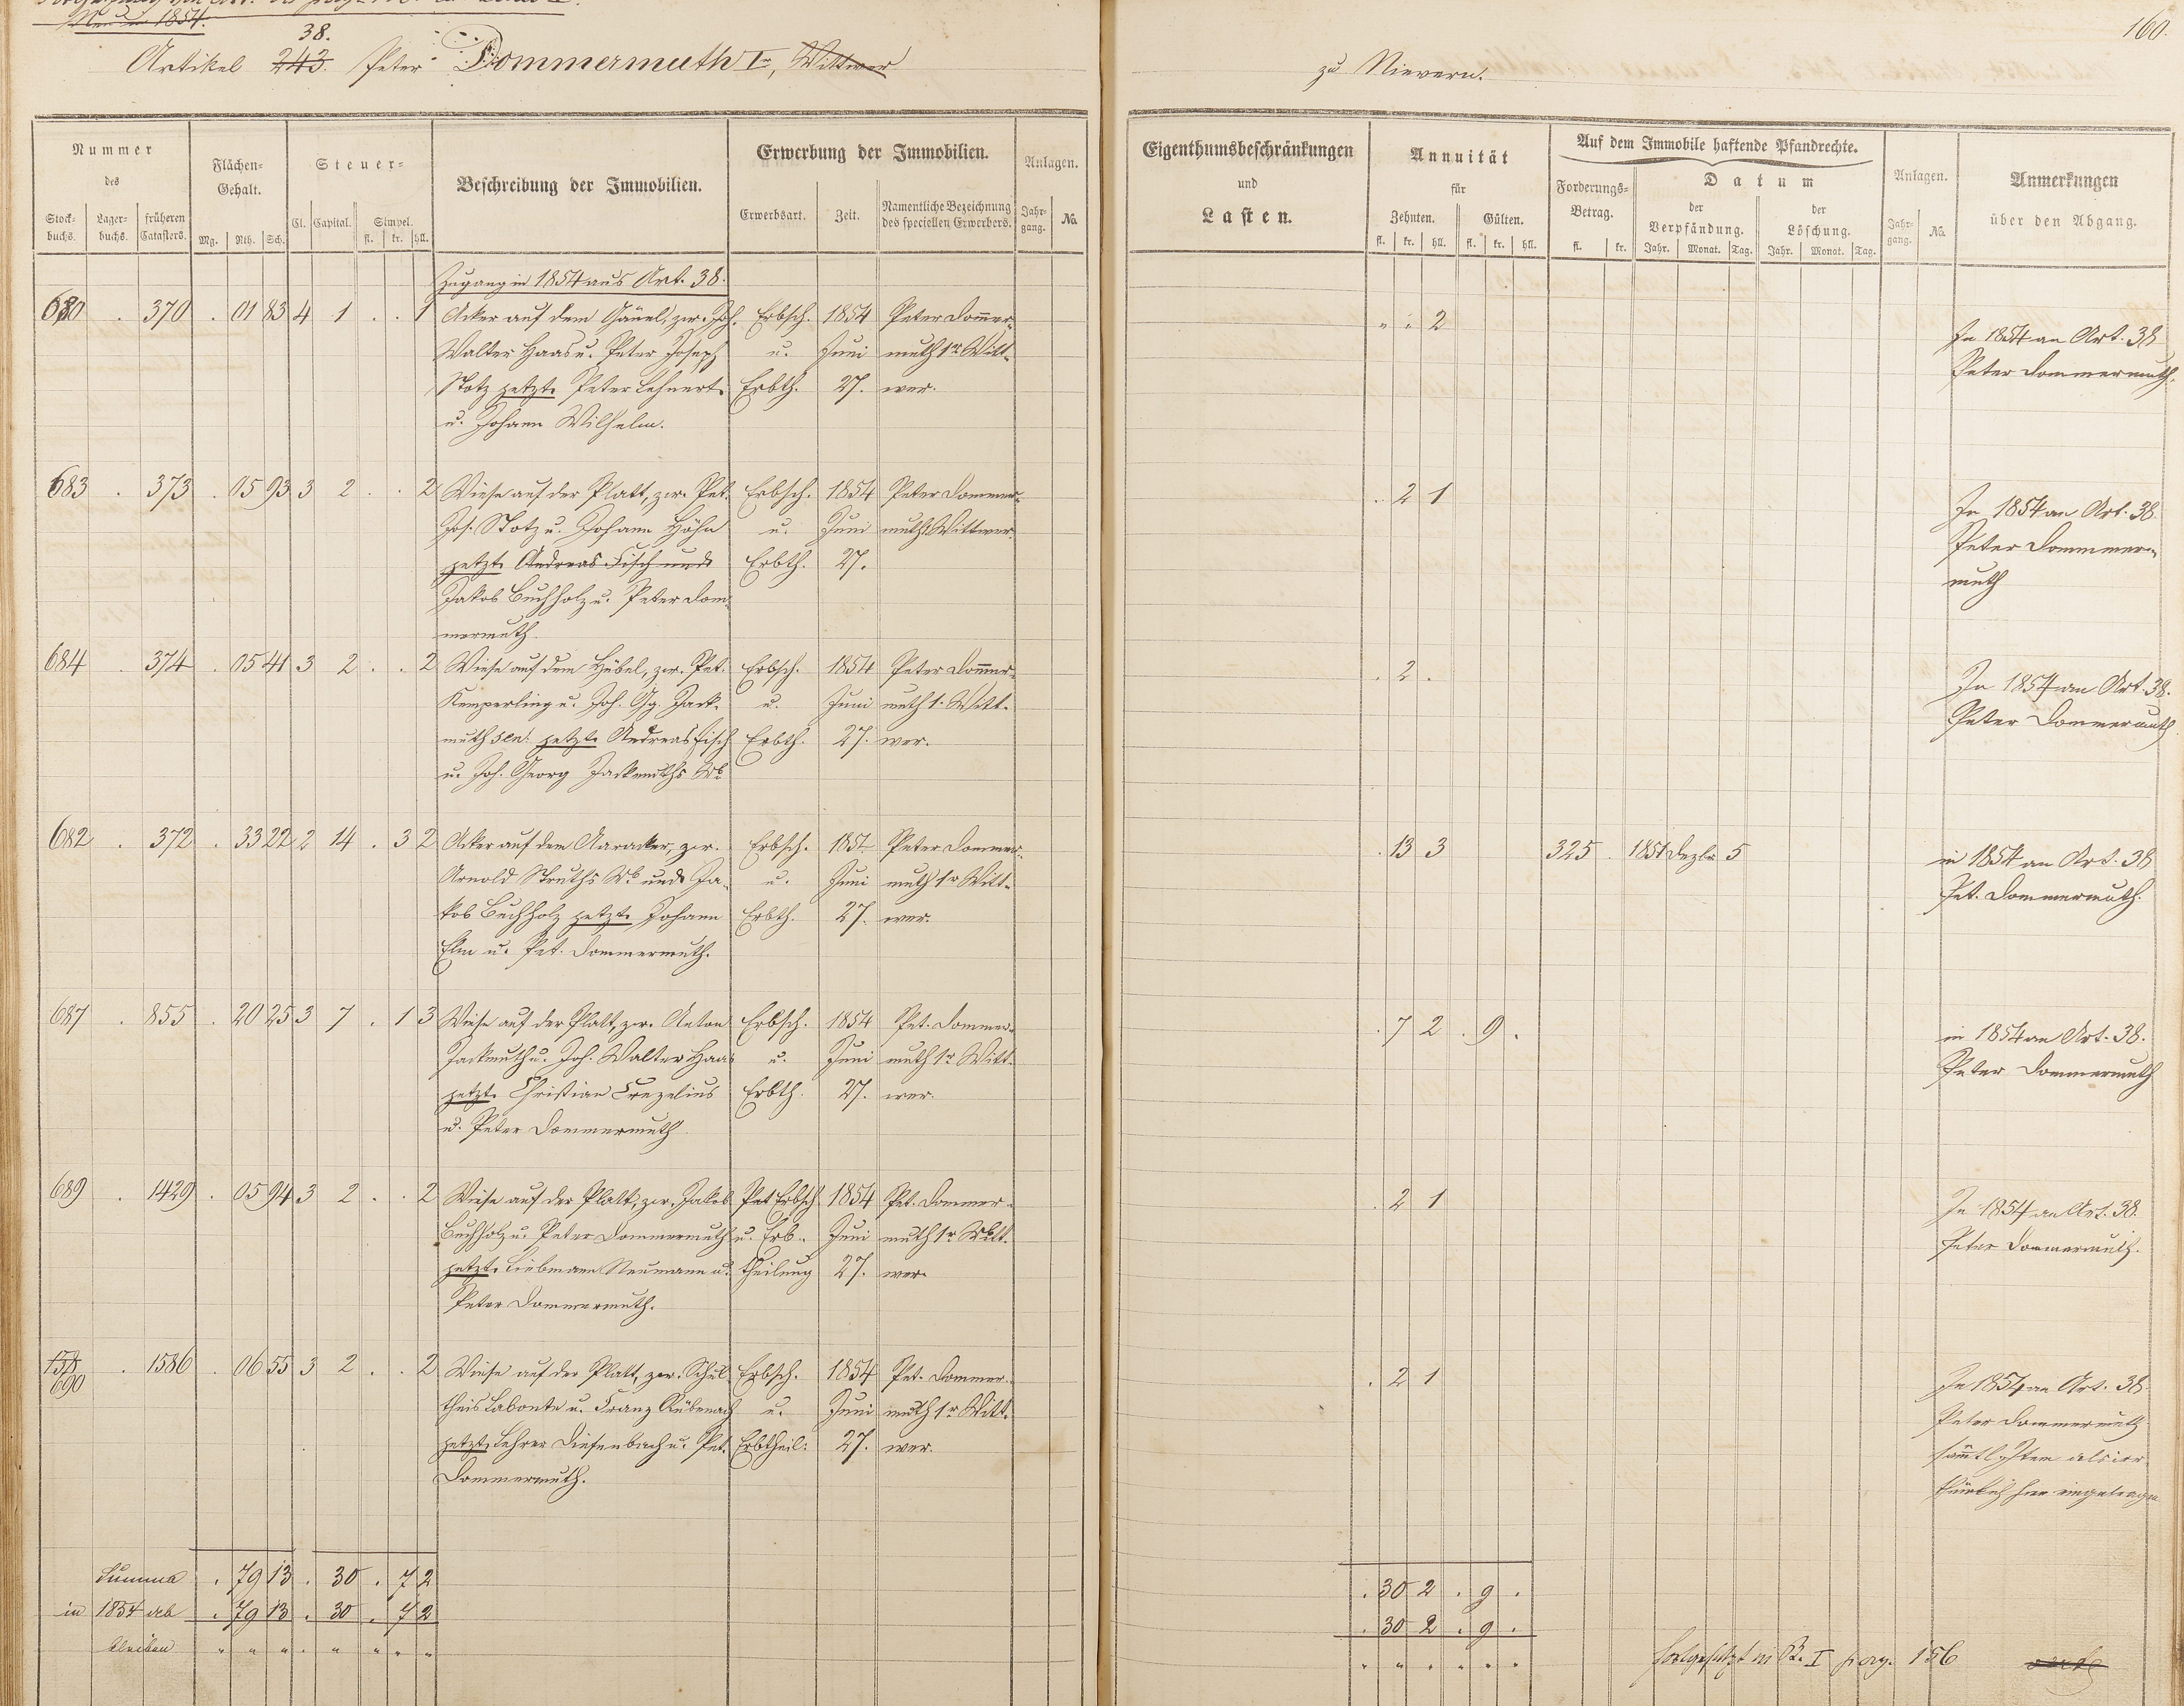 Neu in 1854.
160.
38.
Artikel 243. Peter Dommermuth Ir, Wittwer
zu Nievern.
Nummer des
Stockbuchs. Lagerbuchs. früheren Catasters.
Flächen-Gehalt.
Mg. Rth. Sch.
Steuer-
Cl. Capital. Simpel.
fl. kr. hll.
Beschreibung der Immobilien.
Erwerbung der Immobilien.
Erwerbsart. Zeit. Namentliche Bezeichnung des speciellen Erwerbers.
Anlagen.
Jahrgang. No.
Eigenthumsbeschränkungen
und
Lasten.
Annuität
für
Zehnten. Gülten.
fl. kr. hll. fl. kr. hll.
Auf dem Immobile haftende Pfandrechte.
Forderungs-Betrag.
fl. kr.
Datum
der Verpfändung. der Löschung.
Jahr. Monat. Tag. Jahr. Monat. Tag.
Anlagen.
Jahrgang. No.
Anmerkungen
über den Abgang.
Zugang in 1854 aus Art. 38.
680 . 370 . 01 83 4 1 . . 1 Acker auf dem Gäuel, zw. Joh. Erbsch. 1854 Peter Dom̄er- " " 2 In 1854 an Art. 38
Walter Haas u. Peter Joseph u. Juni muth 1r Witt- Peter Dommermuth.
Stotz jetzt Peter Lehnert Erbth. 27. wer.
u. Johann Wilhelm.
683 . 373 . 05 93 3 2 . . 2 Wiese auf der Platt, zw. Pet. Erbsch. 1854 Peter Dommer- . 2 1 In 1854 an Art. 38.
Jos. Stotz u. Johann Höhn u. Juni muth Wittwer. Peter Dommer-
jetzt Andreas Fisch und Erbth. 27. muth
Jakob Buchholz u. Peter Dom-
mermuth.
684 . 374 . 05 41 3 2 . . 2 Wiese auf dem Hübel, zw. Pet. Erbsch. 1854 Peter Dom̄er- . 2 . In 1854 an Art. 38.
Kemperling u. Joh. Gg. Jack- u. Juni muth 1. Witt- Peter Dommermuth
muth sen. jetzt Andreas Fisch Erbth. 27. wer.
u. Joh. Georg Jackmuths Wb
682 . 372 . 33 22 2 14 . 3 2 Acker auf dem Aaracker, zw. Erbsch. 1854 Peter Dommer- . 13 3 325 . 1851 Dezbr 5 in 1854 an Art. 38
Arnold Struths Wb und Ja- u. Juni muth 1r Witt- Pet. Dommermuth.
kob Buchholz jetzt Johann Erbth. 27. wer.
Elm u. Pet. Dommermuth.
687 . 855 . 20 25 3 7 . 1 3 Wiese auf der Platt, zw. Anton Erbsch. 1854 Pet. Dommer- . 7 2 . 9 . in 1854 an Art. 38.
Jackmuth u. Joh. Walter Haas u. Juni muth 1r Witt- Peter Dommermuth
jetzt Christian Crezelius Erbth. 27. wer.
u. Peter Dommermuth
689 . 1429 . 05 94 3 2 . . 2 Wiese auf der Platt, zw. Jakob Erbsch 1854 Pet. Dommer- . 2 1 In 1854 an Art. 38.
Buchholz u. Peter Dommermuth u. Erb- Juni muth 1r Witt- Peter Dommermuth.
jetzt Liebmann Neumann u. theilung 27. wer.
Peter Dommermuth.
690 . 1586 . 06 55 3 2 . . 2 Wiese auf der Platt, zw. Schul- Erbsch. 1854 Pet. Dommer- . 2 1 In 1854 an Art. 38.
theis Labonte u. Franz Rübenach u. Juni muth 1r Witt- Peter Dommermuth
jetzt Lehrer Diefenbach u. Pet. Erbtheil: 27. wer. als irr-
Dommermuth. thümlich hier eingetragen
Summa . 79 13 . 30 . 7 2 . 30 2 . 9 .
in 1854 ab . 79 13 . 30 . 7 2 . 30 2 . 9 .
bleiben " " " . " " " " " " " " " "
fortgesetzt in B. I pag. 156